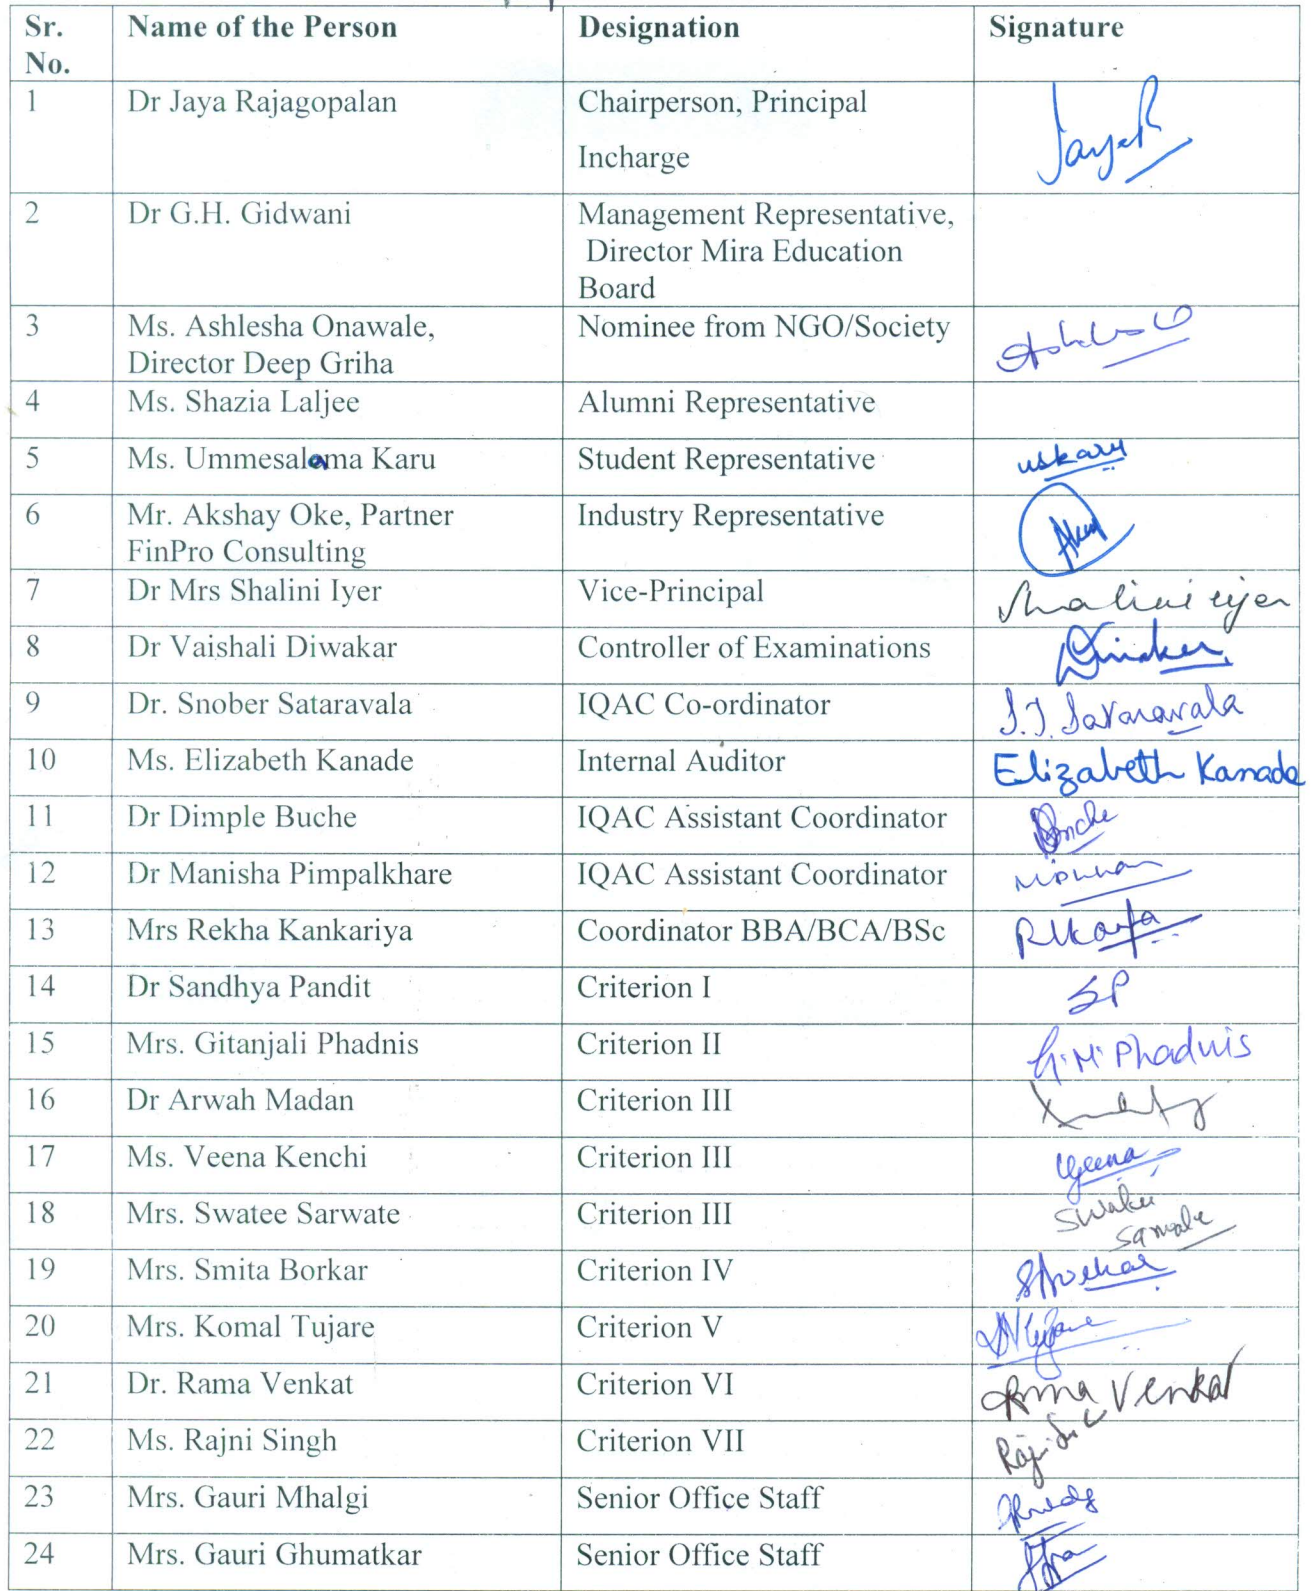 Sr. No. Name of the Person Designation Signature
1 Dr Jaya Rajagopalan Chairperson, Principal Incharge JayaR
2 Dr G.H. Gidwani Management Representative,
Director Mira Education
Board
3 Ms. Ashlesha Onawale, Nominee from NGO/Society
Director Deep Griha
4 Ms. Shazia Laljee Alumni Representative
5 Ms. Ummesalama Karu Student Representative uskaru
6 Mr. Akshay Oke, Partner Industry Representative
FinPro Consulting
7 Dr Mrs Shalini Iyer Vice-Principal Shalini iyer
8 Dr Vaishali Diwakar Controller of Examinations
9 Dr. Snober Sataravala IQAC Co-ordinator S.J. Sataravala
10 Ms. Elizabeth Kanade Internal Auditor Elizabeth Kanade
11 Dr Dimple Buche IQAC Assistant Coordinator
12 Dr Manisha Pimpalkhare IQAC Assistant Coordinator
13 Mrs Rekha Kankariya Coordinator BBA/BCA/BSc
14 Dr Sandhya Pandit Criterion I SP
15 Mrs. Gitanjali Phadnis Criterion II G.M. Phadnis
16 Dr Arwah Madan Criterion III
17 Ms. Veena Kenchi Criterion III Veena
18 Mrs. Swatee Sarwate Criterion III Swatee
Sarwate
19 Mrs. Smita Borkar Criterion IV
20 Mrs. Komal Tujare Criterion V
21 Dr. Rama Venkat Criterion VI Rama Venkat
22 Ms. Rajni Singh Criterion VII
23 Mrs. Gauri Mhalgi Senior Office Staff
24 Mrs. Gauri Ghumatkar Senior Office Staff